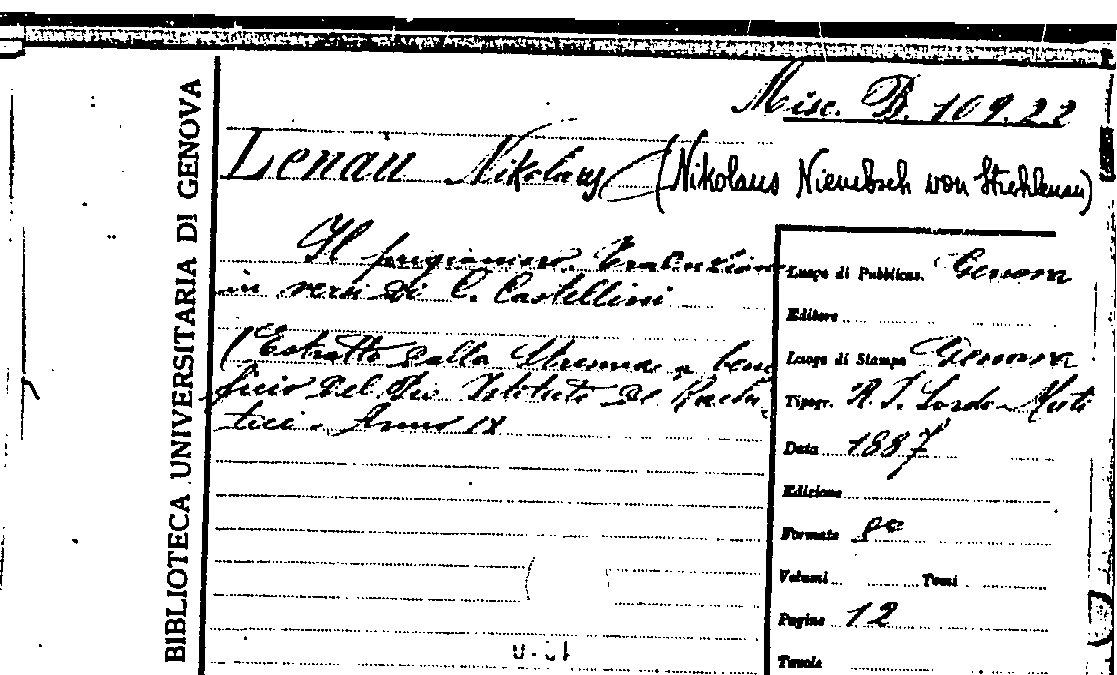 BIBLIOTECA UNIVERSITARIA DI GENOVA
Misc. B. 109.22
Lenau Nikolaus (Nikolaus Niembsch von Strehlenau)
Il prigioniero. Traduzione
in versi di C. Castellini
(Estratto dalla Strenna a bene
ficio del Pio Istituto dei Rachi-
tici. Anno IX
Luogo di Pubblicaz. Genova
Editore
Luogo di Stampa Genova
Tipogr. R. I. Sordo-Muti
Data 1887
Edizione
Formato 8°
Volumi Tomi
Pagine 12
Tavole